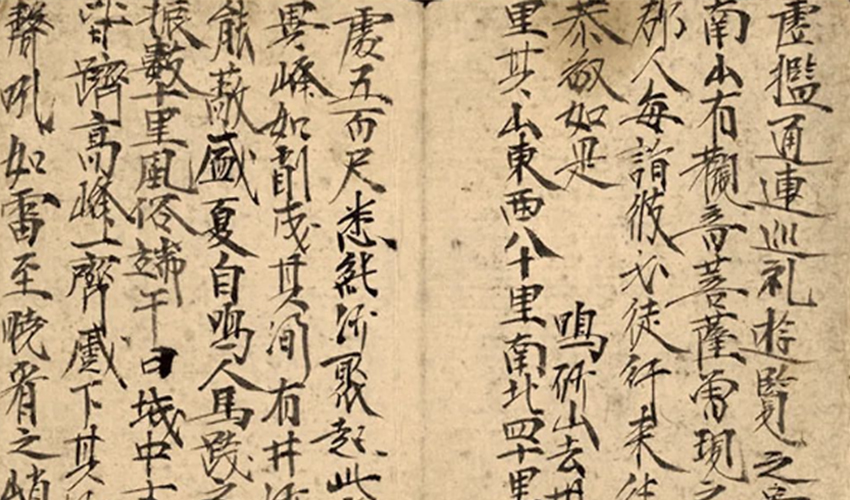 虛檻通連巡礼遊覽之
南山有觀音菩薩曾現之
郡人每詣彼必徒行來
恭敬如是 鳴砂山去
里其山東西八十里南北四十里
處五百尺悉純沙聚起此
異峰如削成其間有井沙
能蔽盛夏自鳴人馬踐之
振數十里風俗端午日城中士
皆躋高峰一齊蹙下其
聲吼如雷至曉看之峭